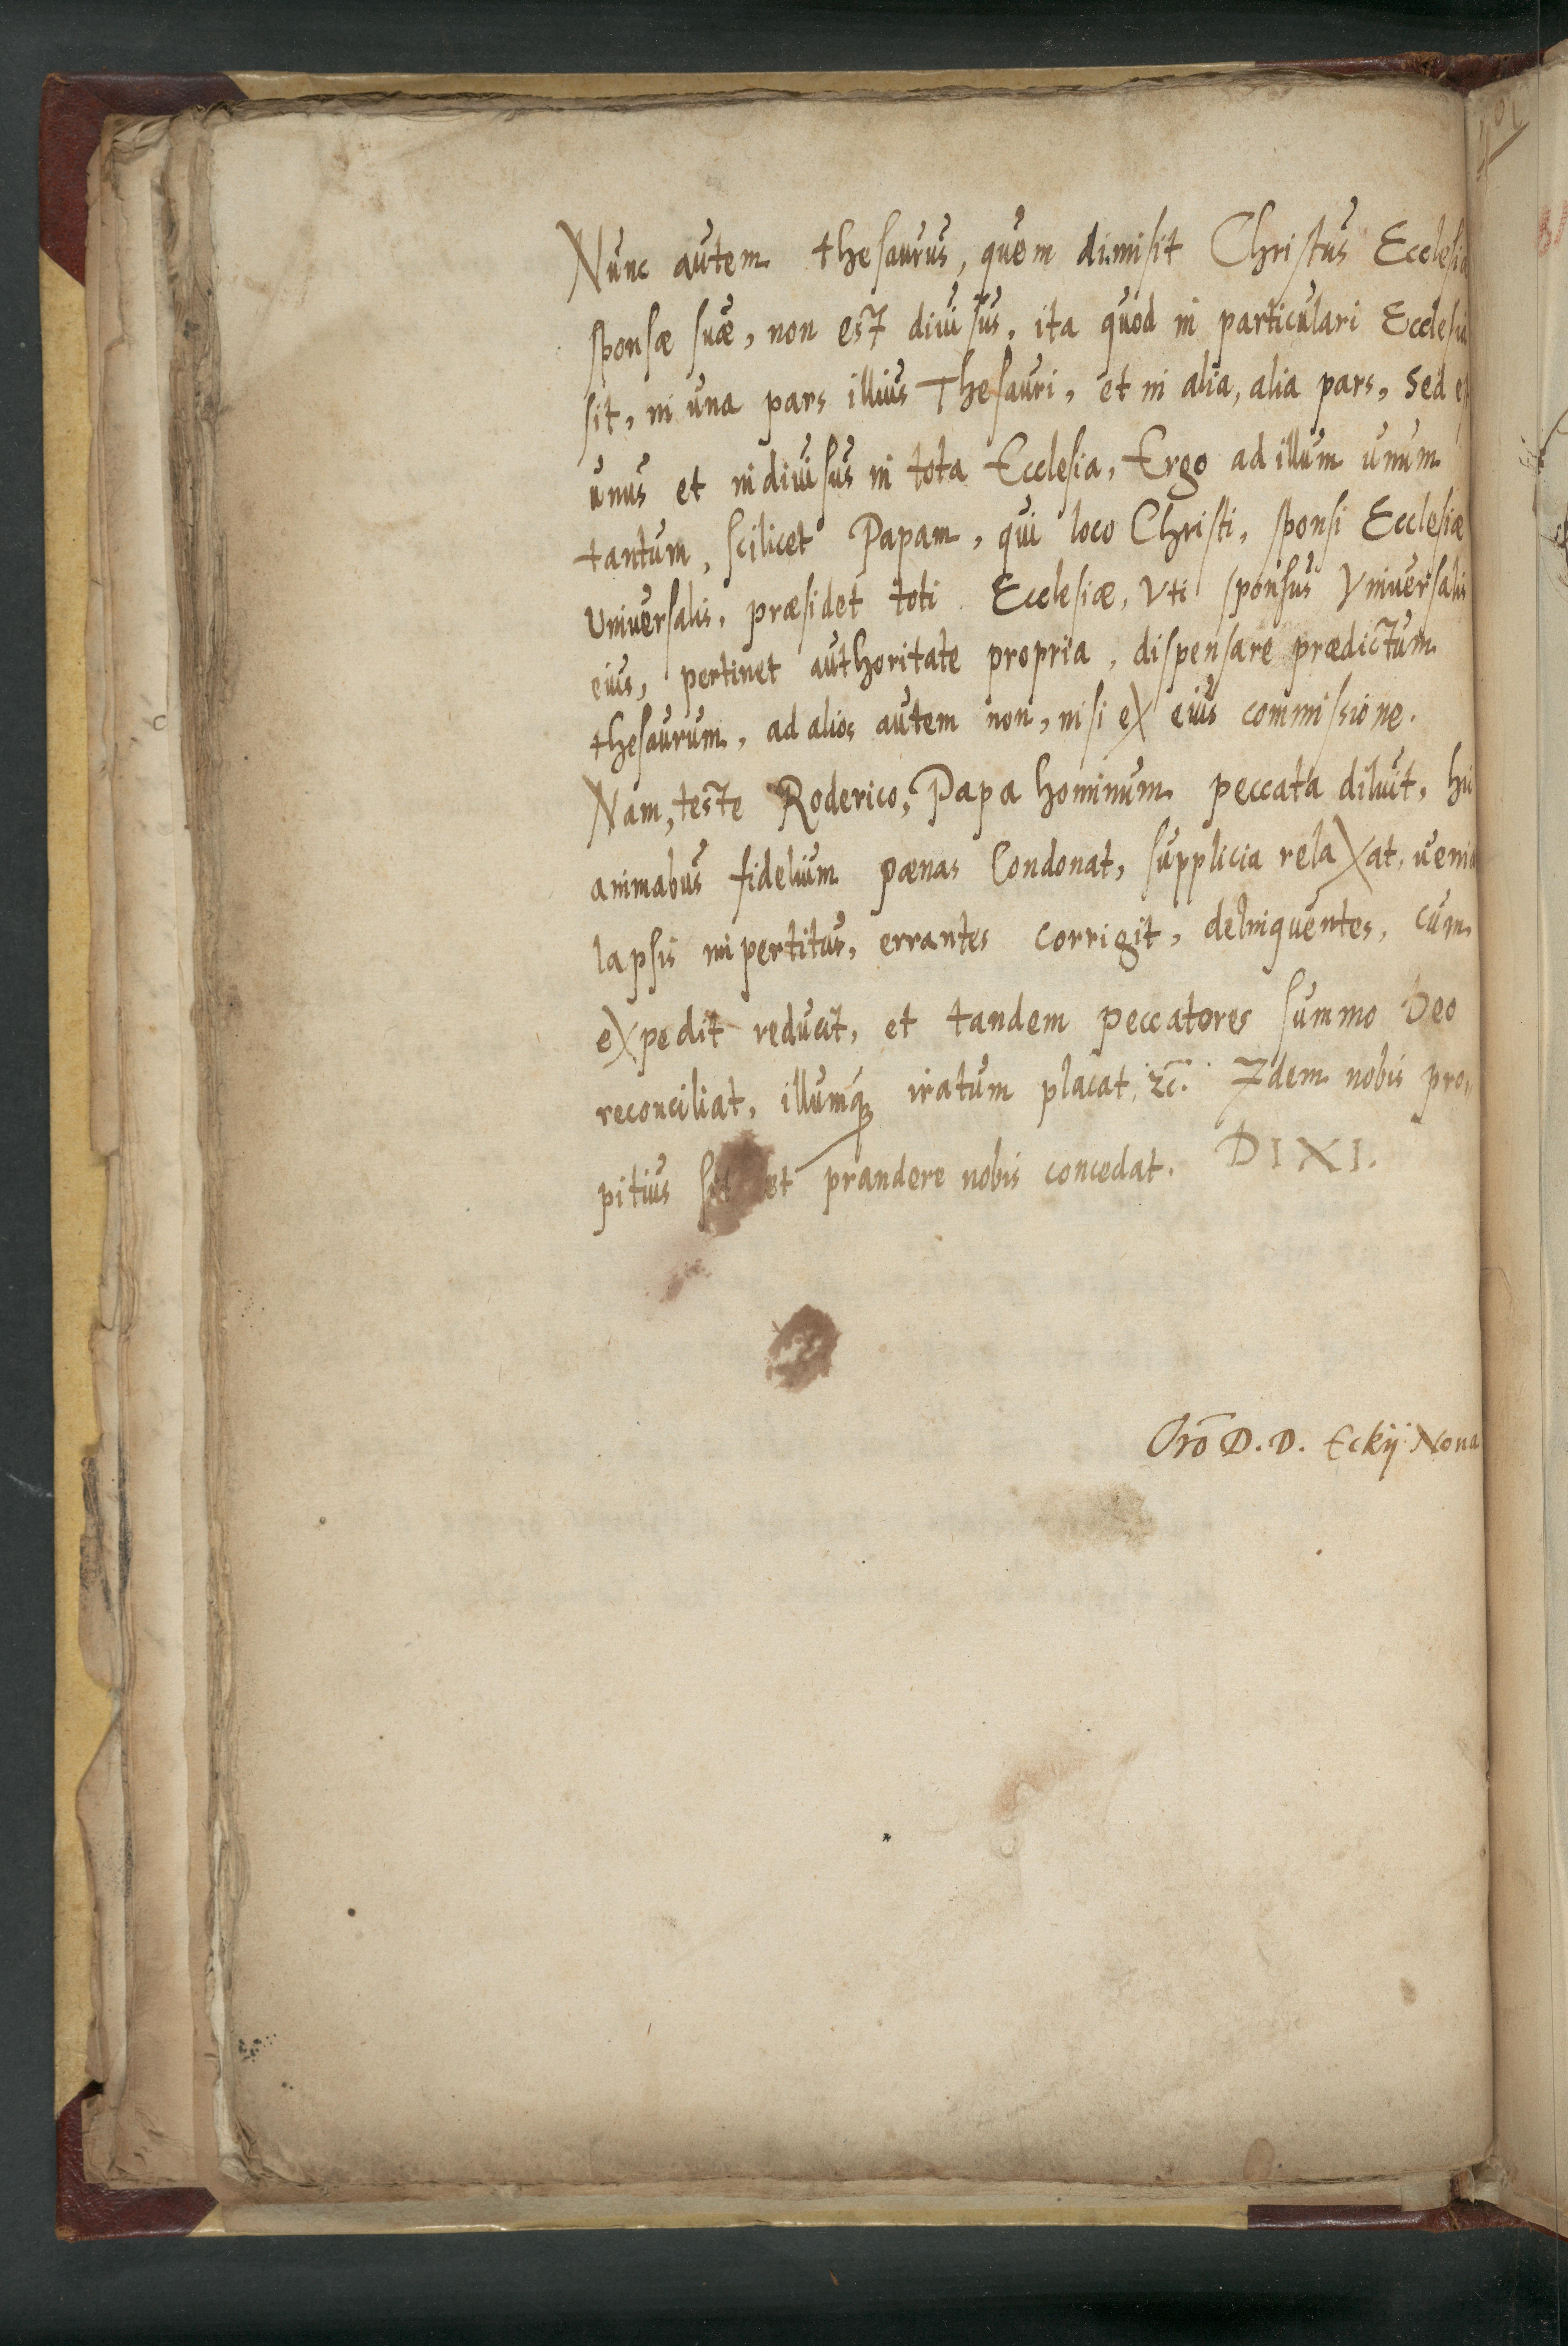 Nunc autem thesaurus, quem dimisit Christus Ecclesiæ
sponsæ suæ, non est diuisus, ita quod in particulari Ecclesia
sit, in una pars illius Thesauri, et in alia, alia pars, Sed
unus et indiuisus in tota Ecclesia, Ergo ad illum unum
tantum, scilicet Papam, qui loco Christi, sponsi Ecclesiæ
Universalis, præsidet toti Ecclesiæ, Vti sponsus Vniversalis
eius, pertinet authoritate propria, dispensare prædictum
thesaurum, ad alios autem non, nisi ex eius commissione.
Nam, teste Roderico, Papa hominum peccata diluit,
animabus fidelium pænas Condonat, supplicia relaxat,
lapsis impertitur, errantes corrigit, delinquentes, cum
expedit reducit, et tandem peccatores summo Deo
reconciliat, illumq́; iratum placat, ⁊c̄. Idem nobis pro„
pitius sit et prandere nobis concedat. DIXI.
Orō D. D. Eckij Nona